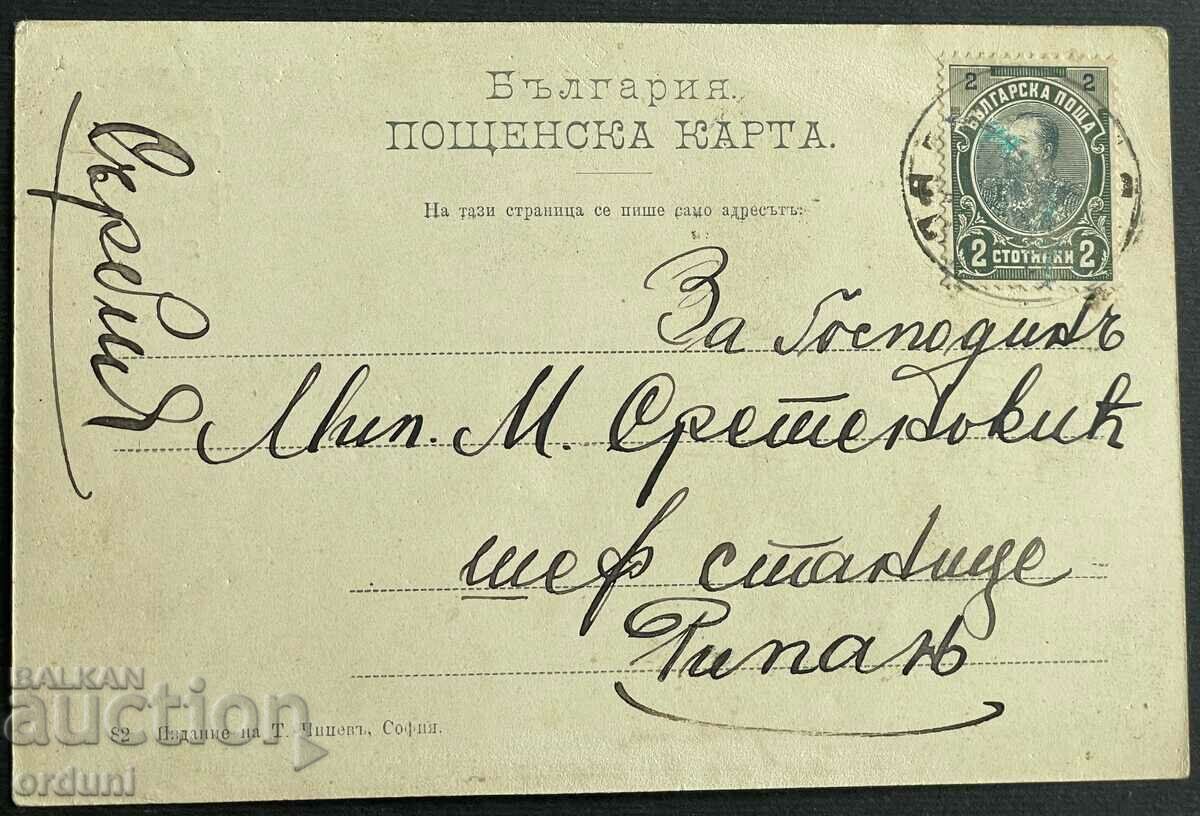 България.
ПОЩЕНСКА КАРТА.
На тази страница се пише само адресътъ:
2 2
БЪЛГАРСКА ПОЩА
2 СТОТИНКИ 2
Сърбия
За Господинъ
Мил. М. Сретеновић
шеф станице
Рипањ
82 Издание на Т. Чипевъ, София.
BALKAN
auction
orduni